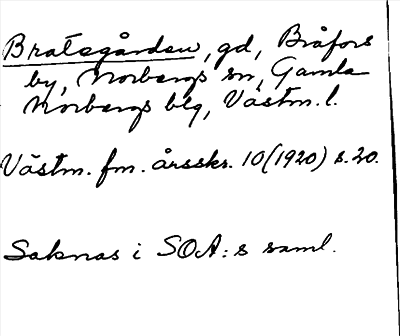 Bratsgården, gd, Bråfors
by, Norbergs sn, Gamla
Norbergs blg, Västm. l.
Västm. fm. årsskr. 10 (1920) s. 20.
Saknas i SOA:s saml.